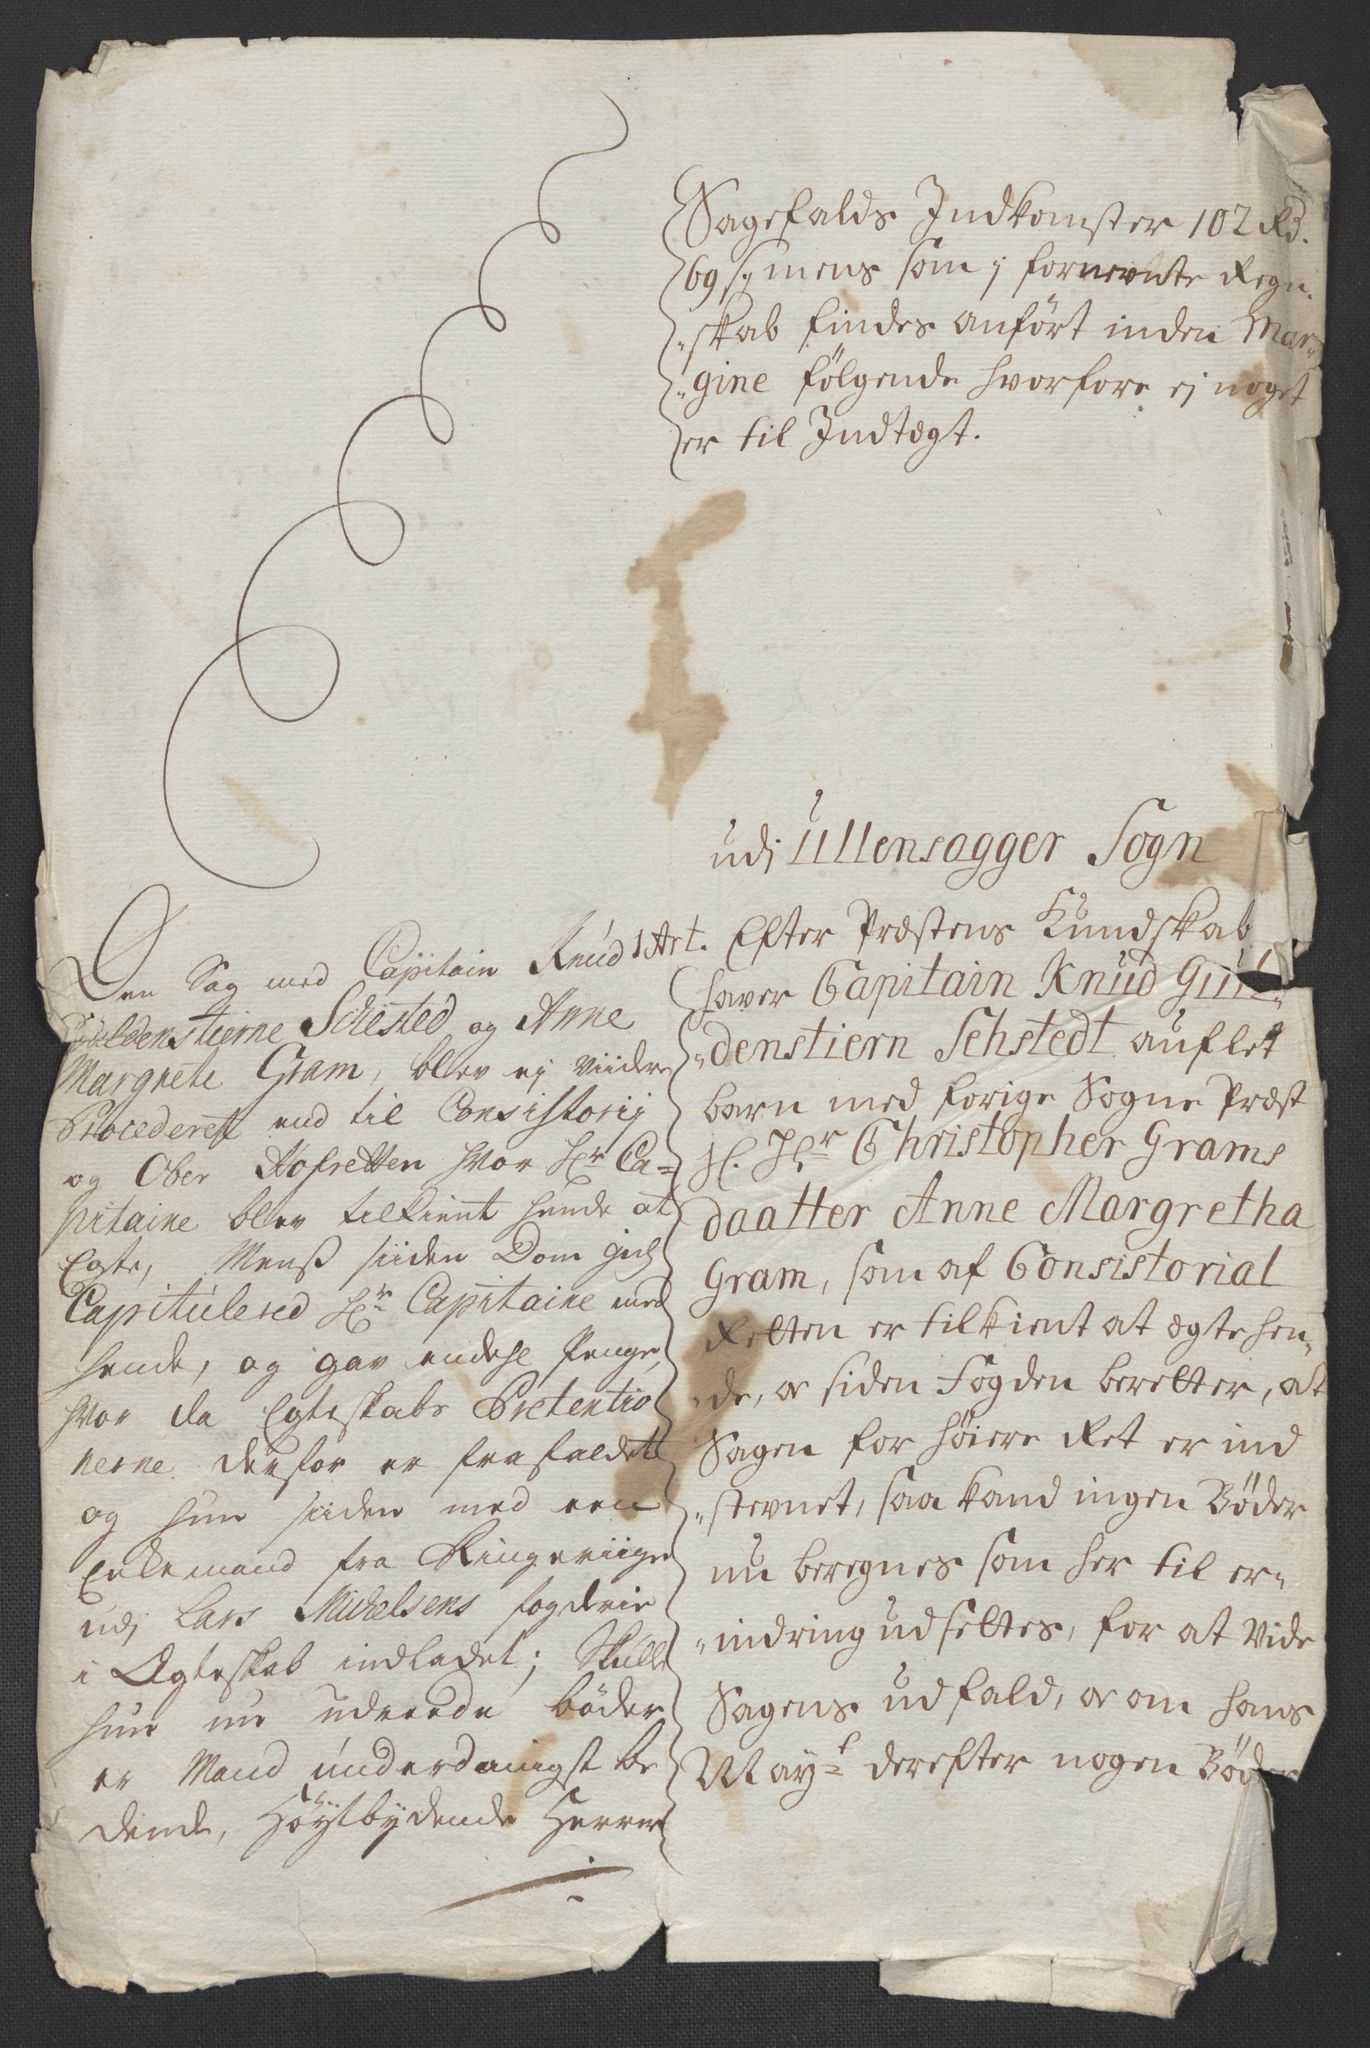 Sagefalds Indkomster 102 Rd.
69 s; mens som j fornevnte Regn-
-skab findes anført inden Mar-
-gine følgende hvorfore ej noget
er til Indtægt.
udj Ullensagger Sogn
1 Art. Efter Præstens Kundskab
hafver Capitain Knud Gül-
-denstiern Sehstedt auflet
barn med forige Sogne Præst
Sl. Hr Christopher Grams
daatter Anne Margretha
Gram, som af Consistorial
Retten er tilkient at ægte hen-
-de, og siden Fogden beretter, at
Sagen for høiere Ret er ind
-stevnet, saa kand ingen Bøder
nu beregnes som her til er-
-indring udsettes, for at vide
Sagens udfald, og om hans
May:t derefter nogen Bøder
Den Sag med Capitain Knud
Güldenstierne Schested og Anne
Margrete Gram, blev ej viidere
Procederet end til Consistorij
og Ober Hofretten hvor Hr Ca-
pitaine blev tilkient hende at
Egte, Menß siiden Dom gich
Capitulered Hr Capitaine med
hende, og gav endehl Penge,
hvor da Egteskabs Pretentio
nerne derfor er frafaldet
og hun siiden med een
Enkemand fra Ringeriige
udj Lars Michelsens fogderie
i Ægteskab indladet; Skulle
hun nu udreede bøder
er Mand underdanigst be
dende, Høytbydende Herrer